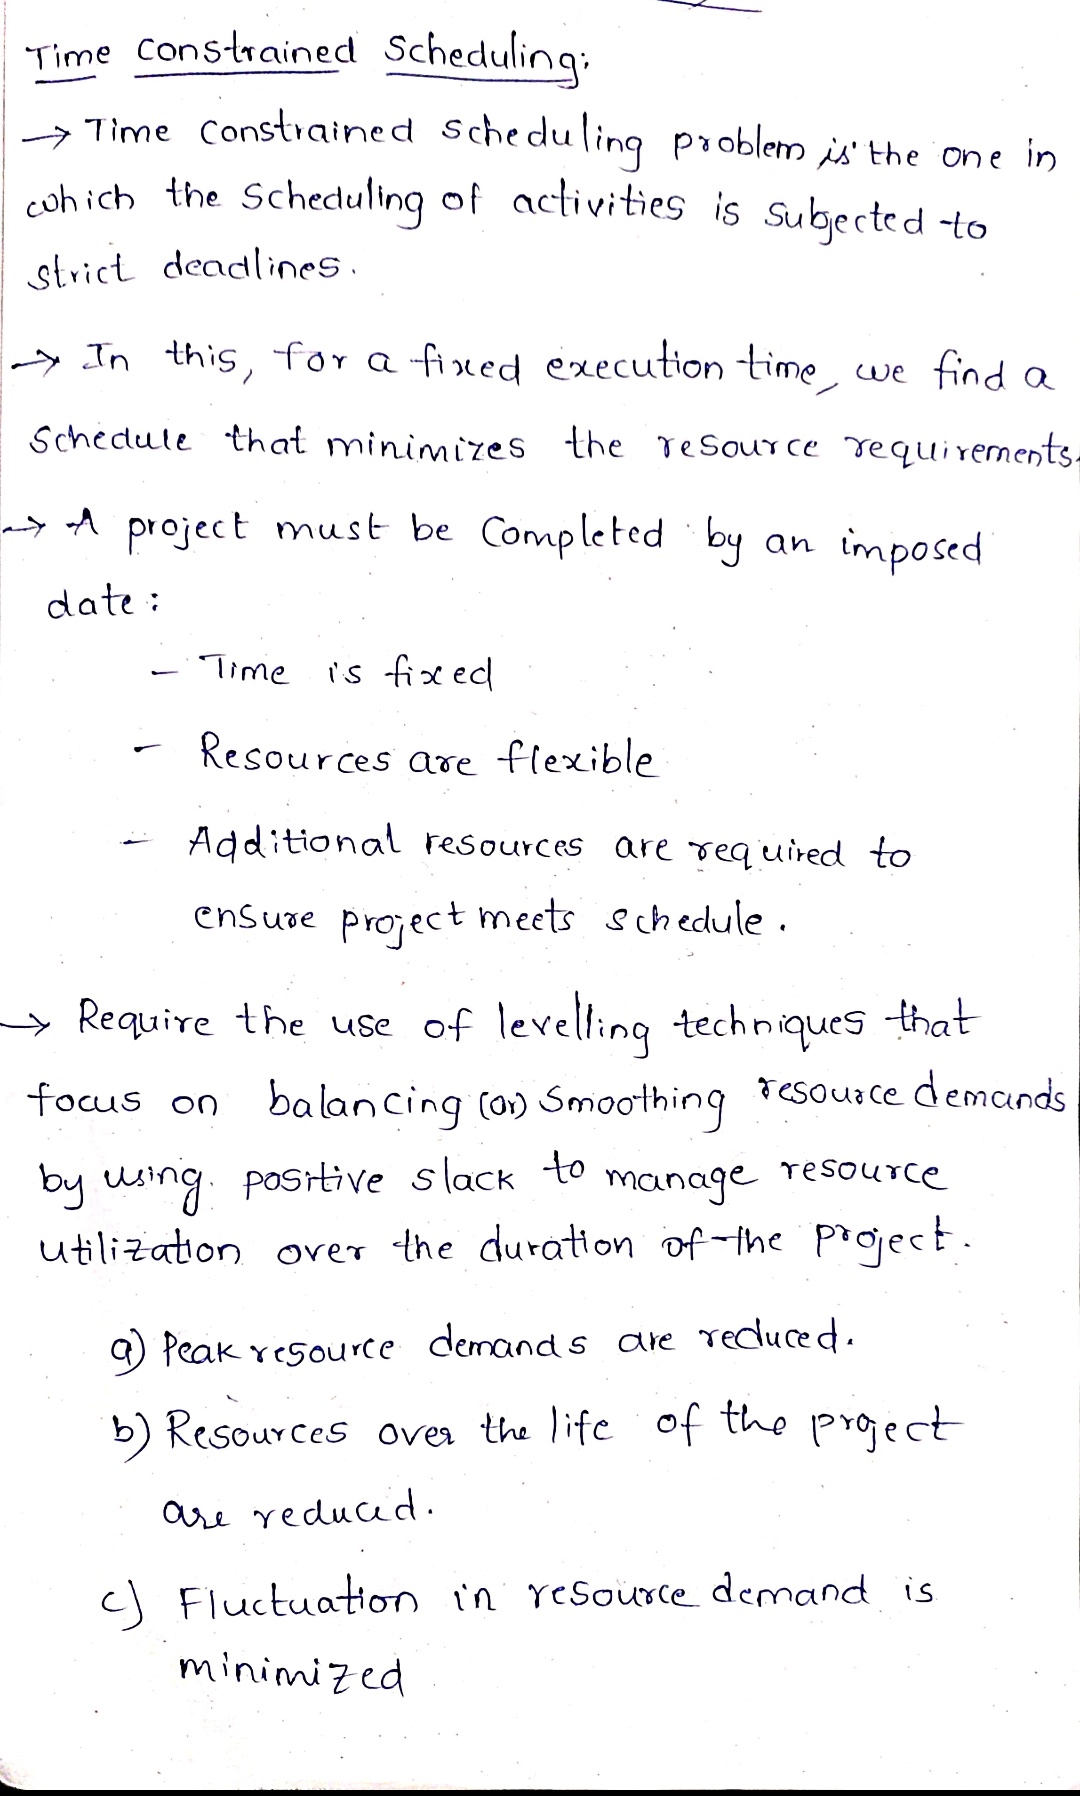 Time constrained Scheduling:
→ Time constrained scheduling problem is the one in
which the Scheduling of activities is subjected to
strict deadlines.
→ In this, for a fixed execution time, we find a
schedule that minimizes the resource requirements.
→ A project must be completed by an imposed
date:
- Time is fixed
- Resources are flexible
- Additional resources are required to
ensure project meets schedule.
→ Require the use of levelling techniques that
focus on balancing (or) Smoothing resource demands
by using positive slack to manage resource
utilization over the duration of the project.
a) Peak resource demands are reduced.
b) Resources over the life of the project
are reduced.
c) Fluctuation in resource demand is
minimized